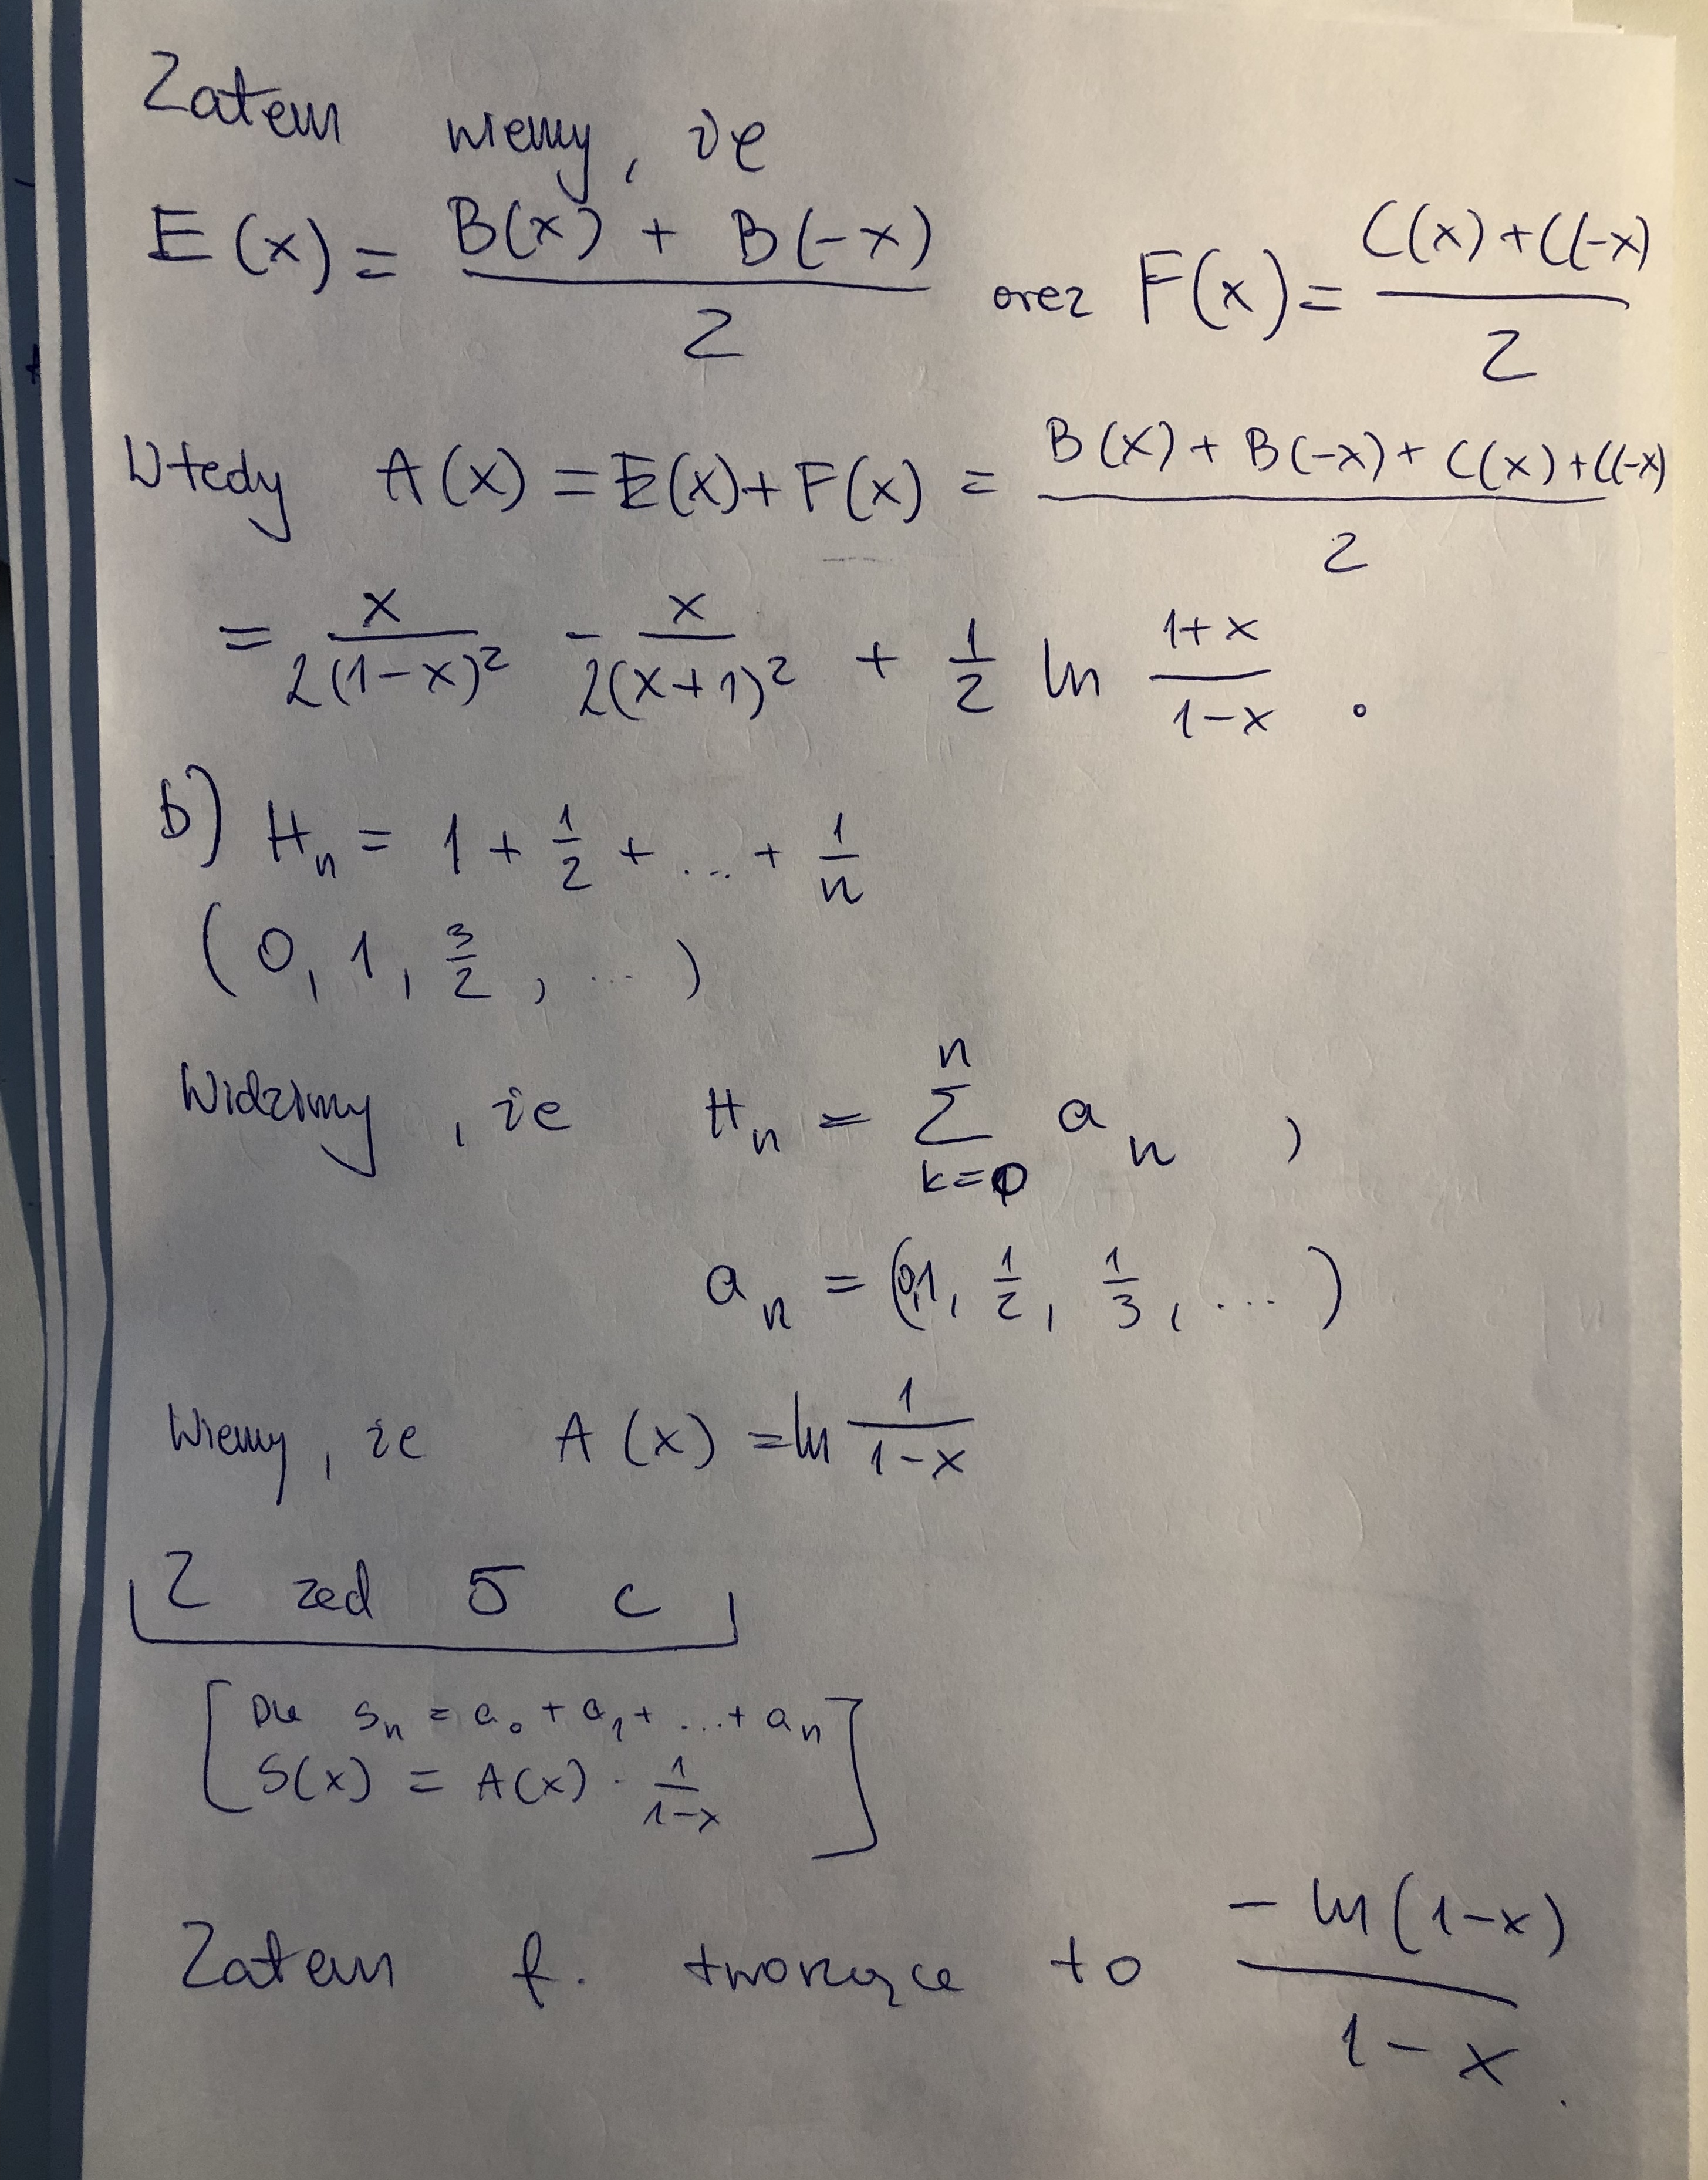 Zatem wiemy, że
E(x) = \frac{B(x) + B(-x)}{2} oraz F(x) = \frac{C(x) + C(-x)}{2}
Wtedy A(x) = E(x) + F(x) = \frac{B(x) + B(-x) + C(x) + C(-x)}{2}
= \frac{x}{2(1-x)^2} - \frac{x}{2(x+1)^2} + \frac{1}{2} ln \frac{1+x}{1-x} .
b) H_n = 1 + \frac{1}{2} + ... + \frac{1}{n}
(0, 1, \frac{3}{2}, ... )
Widzimy, że H_n = \sum_{k=0}^{n} a_n ,
a_n = (0, 1, \frac{1}{2}, \frac{1}{3}, ... )
Wiemy, że A(x) = ln \frac{1}{1-x}
Z zad 5 c
[ Dla s_n = a_0 + a_1 + ... + a_n
S(x) = A(x) · \frac{1}{1-x} ]
Zatem f. tworząca to \frac{- ln(1-x)}{1-x} .